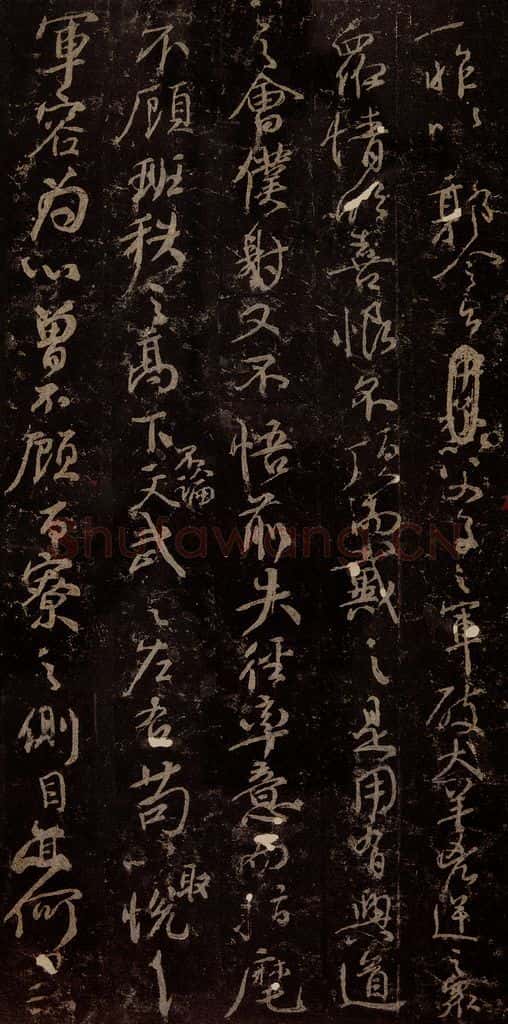 一昨以郭令公以父子之軍破犬羊兇逆之衆
衆情欣喜恨不頂而戴之是用有興道
之會僕射又不悟前失徑率意而指麾
不顧班秩之高下不論文武之左右苟以取悅
軍容為心曾不顧百寮之側目亦何
Shufawang.CN